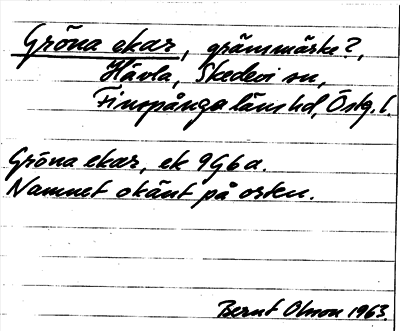 Gröna ekar, gränmärke?,
Hävla, Skedevi sn,
Finspånga läns hd, Östg. l.
Gröna ekar, ek 9G6a.
Namnet okänt på orten.
Bernt Olsson 1963.